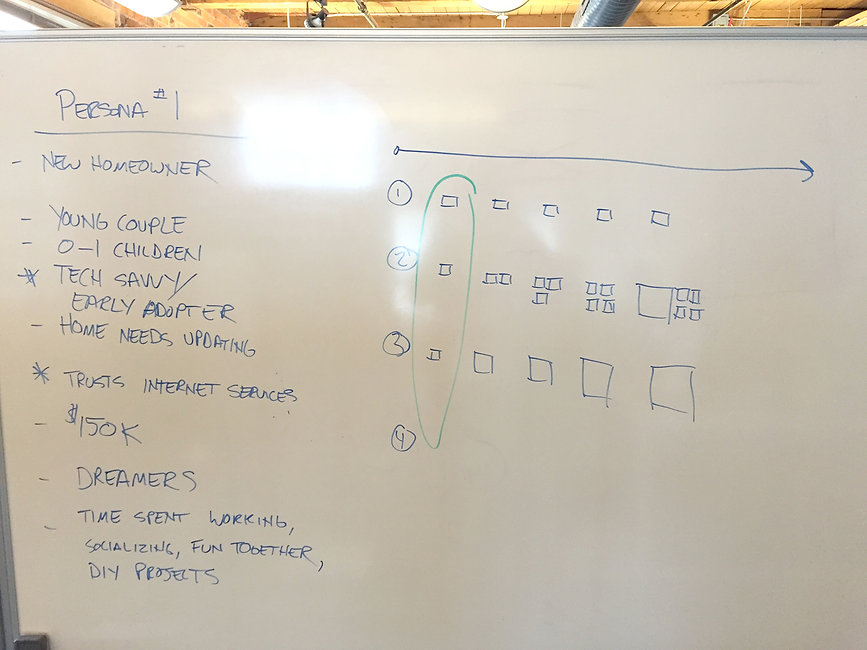 PERSONA #1
- NEW HOMEOWNER
- YOUNG COUPLE
- 0-1 CHILDREN
* TECH SAVVY/
EARLY ADOPTER
- HOME NEEDS UPDATING
* TRUSTS INTERNET SERVICES
- $150K
- DREAMERS
- TIME SPENT WORKING,
SOCIALIZING, FUN TOGETHER,
DIY PROJECTS
1
2
3
4